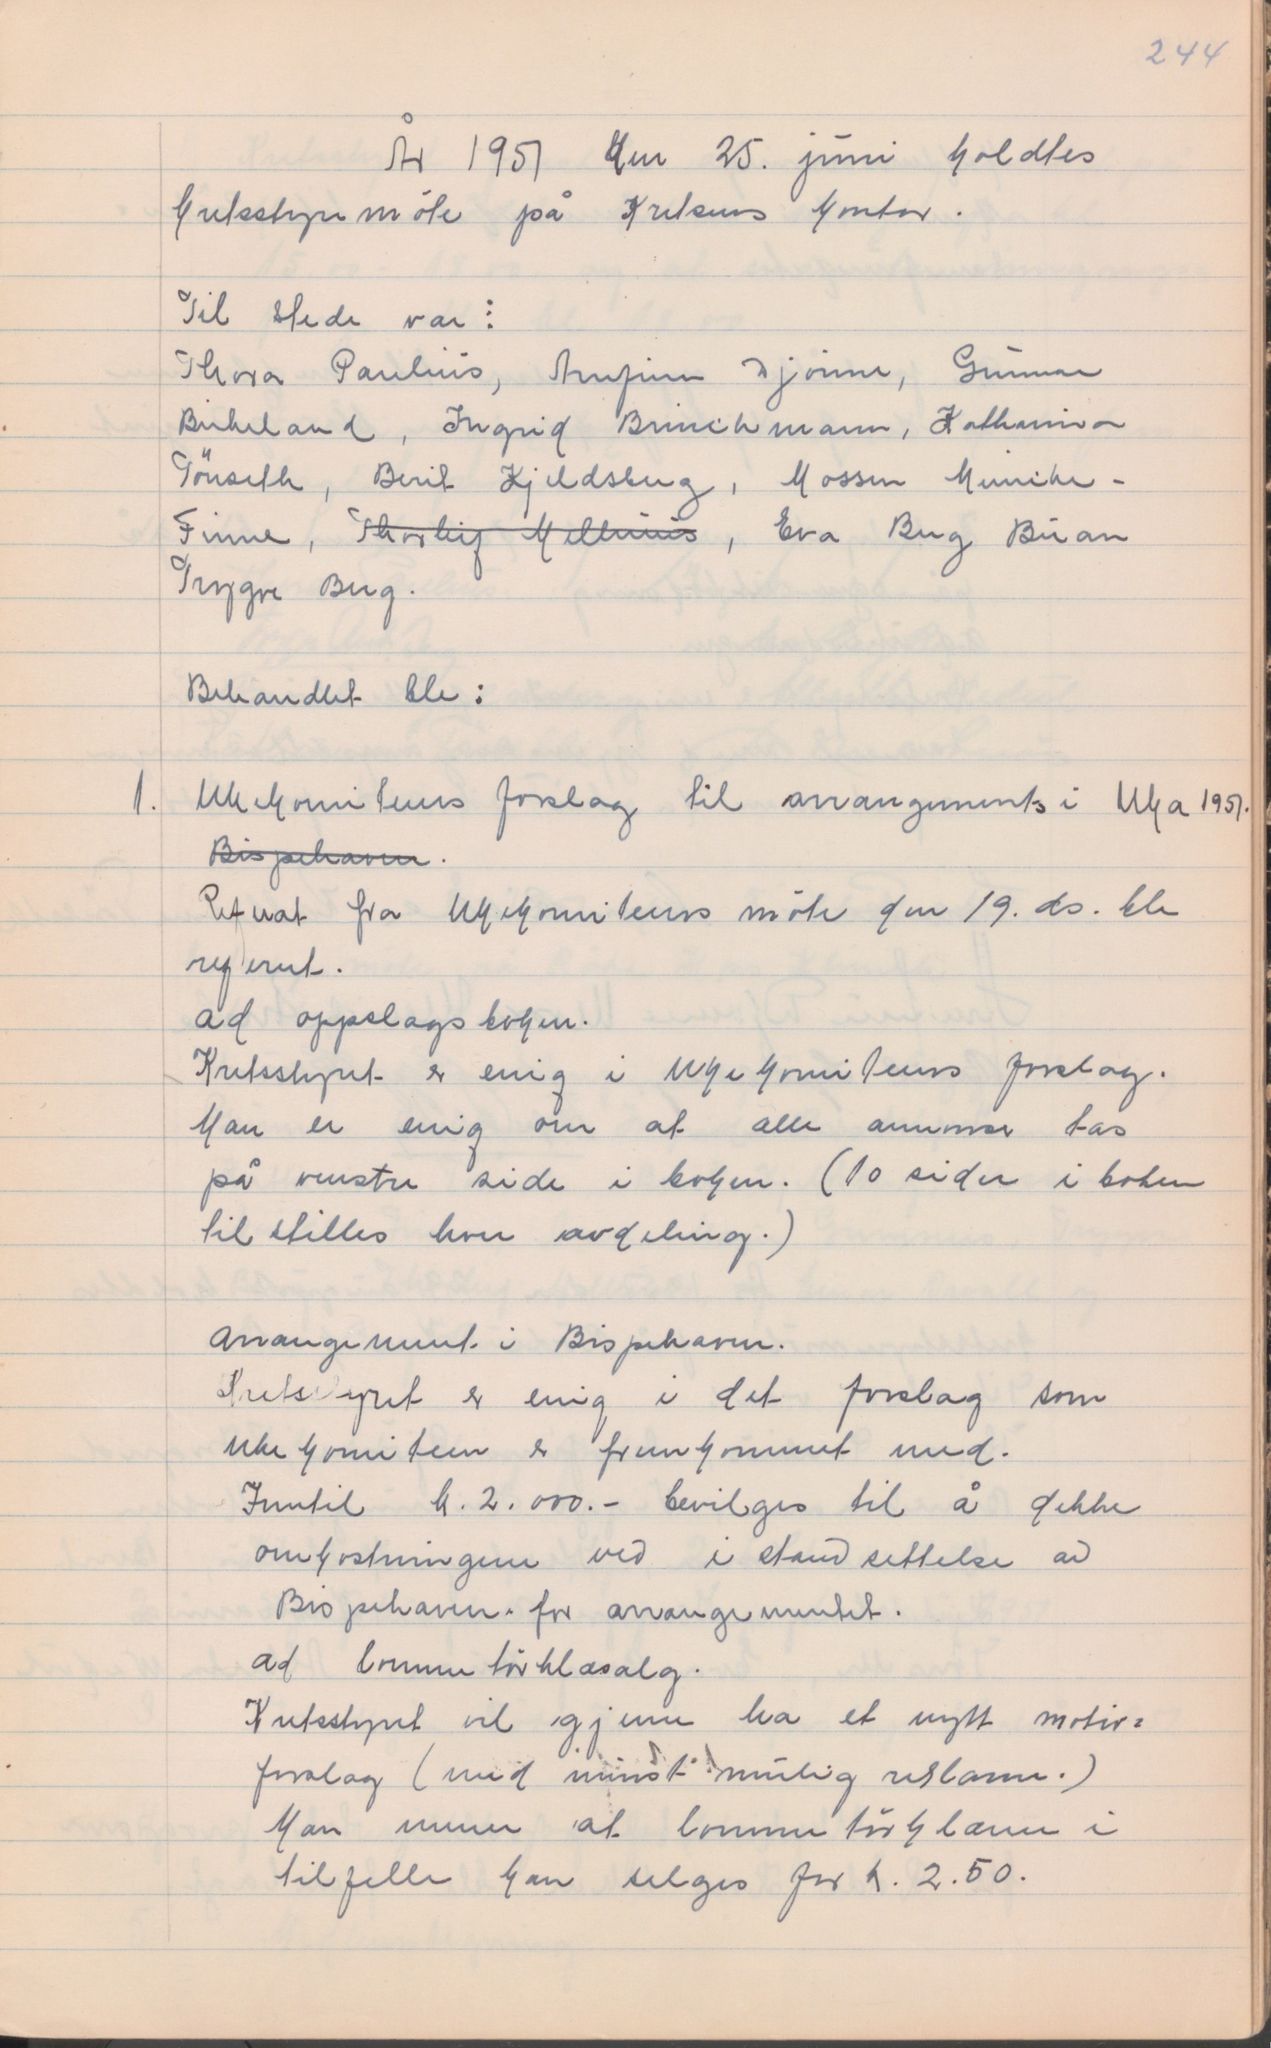 244
År 1951 den 25. juni holdtes
kretsstyremöte på Kretsens kontor.
Til stede var:
Thora Paulius, Arnfinn Djönne, Gunnar
Birkeland, Ingrid Brinchmann, Katharina
Tönseth, Berit Kjeldsberg, Mossen Münche-
Finne, Thorleif Mellinius, Eva Berg Buan
Trygve Berg.
Behandlet ble:
1. Ukekomiteens forslag til arrangements i Uka 1951.
Bispehaven.
Referat fra Ukekomiteens möte den 19. ds. ble
referert.
ad oppslagsboken.
Kretsstyret er enig i Ukekomiteens forslag.
Man er enig om at alle annonser tas
på venstre side i boken. (10 sider i boken
tilstilles hver avdeling.)
Arrangement i Bispehaven.
Kretsstyret er enig i det forslag som
Ukekomiteen er fremkommet med.
Inntil k. 2.000.- bevilges til å dekke
omkostningene ved i standsettelse av
Bispehaven. for arrangementet.
ad lommetörklesalg.
Kretsstyret vil gjerne ha et nytt motiv=
forslag (med minst mulig reklame.)
Man mener at lommetörklærne i
tilfelle kan selges for k. 2.50.